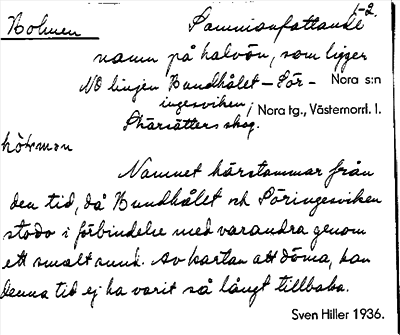 Holmen 1-2.
Sammanfattande
namn på halvön, som ligger
NO linjen Hundhålet – Sör-
ingesviken, Nora s:n
Skärsätters skog. Nora tg., Västernorrl. l.
Namnet härstammar från
den tid, då Hundhålet och Söringesviken
stodo i förbindelse med varandra genom
ett smalt sund. Av kartan att döma, kan
denna tid ej ha varit så långt tillbaka.
Sven Hiller 1936.